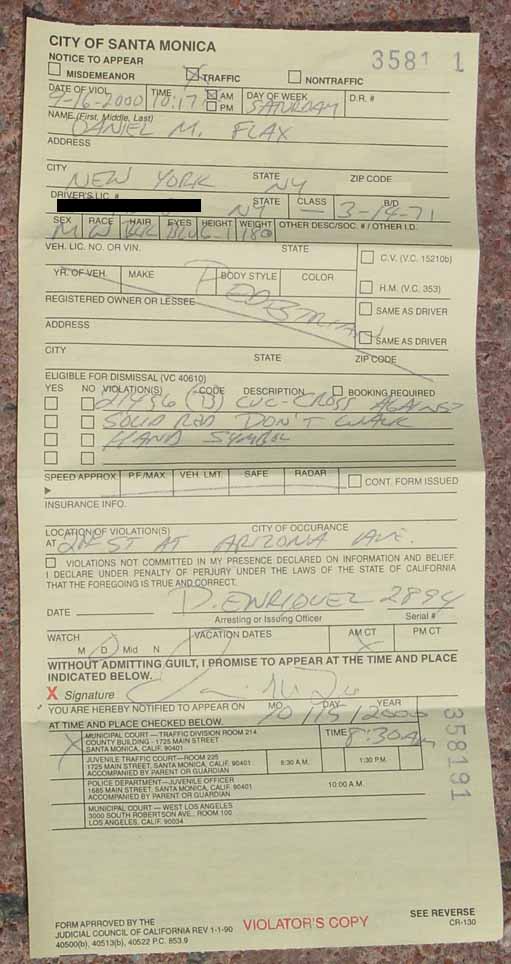 CITY OF SANTA MONICA
NOTICE TO APPEAR
3581 1
MISDEMEANOR TRAFFIC NONTRAFFIC
DATE OF VIOL. TIME AM PM DAY OF WEEK D.R. #
9-16-2000 10:17 SATURDAY
NAME (First, Middle, Last)
DANIEL M. FLAX
ADDRESS
CITY STATE ZIP CODE
NEW YORK NY
DRIVER'S LIC. # STATE CLASS B/D
NY — 3-14-71
SEX RACE HAIR EYES HEIGHT WEIGHT OTHER DESC/SOC. # / OTHER I.D.
M W 180
VEH. LIC. NO. OR VIN. STATE
C.V. (V.C. 15210b)
YR. OF VEH. MAKE BODY STYLE COLOR
H.M. (V.C. 353)
PEDESTRIAN
REGISTERED OWNER OR LESSEE
SAME AS DRIVER
ADDRESS
SAME AS DRIVER
CITY STATE ZIP CODE
ELIGIBLE FOR DISMISSAL (VC 40610)
YES NO VIOLATION(S) CODE DESCRIPTION BOOKING REQUIRED
21456 (B) CVC-CROSS AGAINST
SOLID RED DON'T WALK
HAND SYMBOL
SPEED APPROX P.F./MAX VEH. LMT. SAFE RADAR CONT. FORM ISSUED
INSURANCE INFO.
LOCATION OF VIOLATION(S) CITY OF OCCURANCE
AT 2ND ST AT ARIZONA AVE.
VIOLATIONS NOT COMMITTED IN MY PRESENCE DECLARED ON INFORMATION AND BELIEF.
I DECLARE UNDER PENALTY OF PERJURY UNDER THE LAWS OF THE STATE OF CALIFORNIA
THAT THE FOREGOING IS TRUE AND CORRECT.
D. ENRIQUEZ 2894
DATE Arresting or Issuing Officer Serial #
WATCH VACATION DATES AM CT PM CT
M D Mid N X
WITHOUT ADMITTING GUILT, I PROMISE TO APPEAR AT THE TIME AND PLACE
INDICATED BELOW.
X Signature
YOU ARE HEREBY NOTIFIED TO APPEAR ON MO. DAY YEAR
10/15/2000
AT TIME AND PLACE CHECKED BELOW.
X MUNICIPAL COURT — TRAFFIC DIVISION ROOM 214 TIME 8:30AM
COUNTY BUILDING - 1725 MAIN STREET
SANTA MONICA, CALIF. 90401
JUVENILE TRAFFIC COURT—ROOM 225 8:30 A.M. 1:30 P.M.
1725 MAIN STREET, SANTA MONICA, CALIF. 90401
ACCOMPANIED BY PARENT OR GUARDIAN
POLICE DEPARTMENT—JUVENILE OFFICER 10:00 A.M.
1685 MAIN STREET, SANTA MONICA, CALIF. 90401
ACCOMPANIED BY PARENT OR GUARDIAN
MUNICIPAL COURT — WEST LOS ANGELES
3000 SOUTH ROBERTSON AVE., ROOM 100
LOS ANGELES, CALIF. 90034
358191
FORM APRROVED BY THE
JUDICIAL COUNCIL OF CALIFORNIA REV 1-1-90
40500(b), 40513(b), 40522 P.C. 853.9
VIOLATOR'S COPY
SEE REVERSE
CR-130